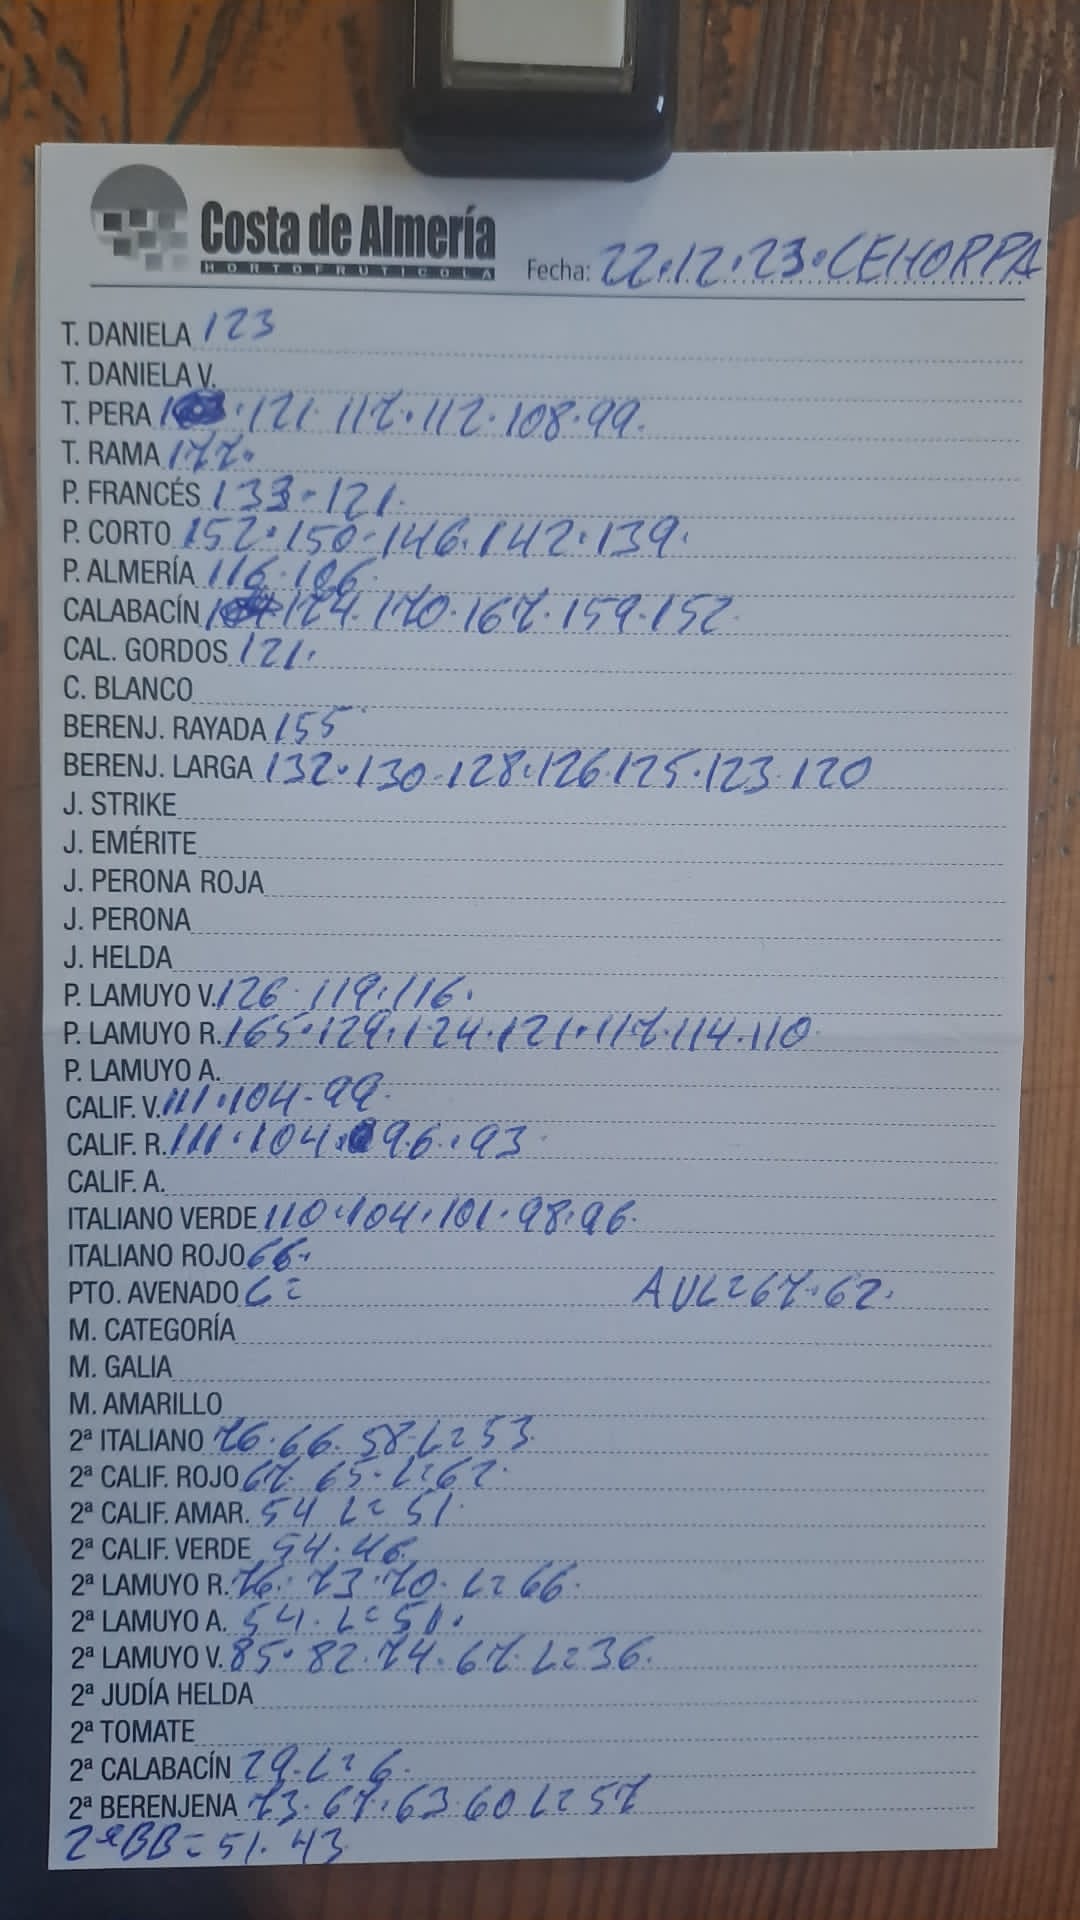 Costa de Almería
HORTOFRUTICOLA
Fecha: 22.12.23.CEHORPA
T. DANIELA 123
T. DANIELA V.
T. PERA 121 117.112.108.99.
T. RAMA 177.
P. FRANCÉS 133.121.
P. CORTO 152.150.146.142.139.
P. ALMERÍA 116.106.
CALABACÍN 174.170.167.159.152.
CAL. GORDOS 121.
C. BLANCO
BERENJ. RAYADA 155
BERENJ. LARGA 132.130.128.126.125.123.120
J. STRIKE
J. EMÉRITE
J. PERONA ROJA
J. PERONA
J. HELDA
P. LAMUYO V. 126.119.116.
P. LAMUYO R. 165.129.124.121.117.114.110.
P. LAMUYO A.
CALIF. V. 111.104-99.
CALIF. R. 111.104.96.93
CALIF. A.
ITALIANO VERDE 110.104.101.98.96.
ITALIANO ROJO 66.
PTO. AVENADO C= AVL=67.62.
M. CATEGORÍA
M. GALIA
M. AMARILLO
2ª ITALIANO 76.66.58.L=53.
2ª CALIF. ROJO 67.65.L=62.
2ª CALIF. AMAR. 54 L=51.
2ª CALIF. VERDE 54.46.
2ª LAMUYO R. 76.73.70.L=66.
2ª LAMUYO A. 54.L=51.
2ª LAMUYO V. 85.82.74.67.L=36.
2ª JUDÍA HELDA
2ª TOMATE
2ª CALABACÍN 29.L=6.
2ª BERENJENA 73.67.63.60 L=57
2ªBB=51.43